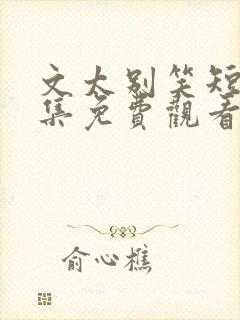 文太别笑短
集免費觀看
俞心樵